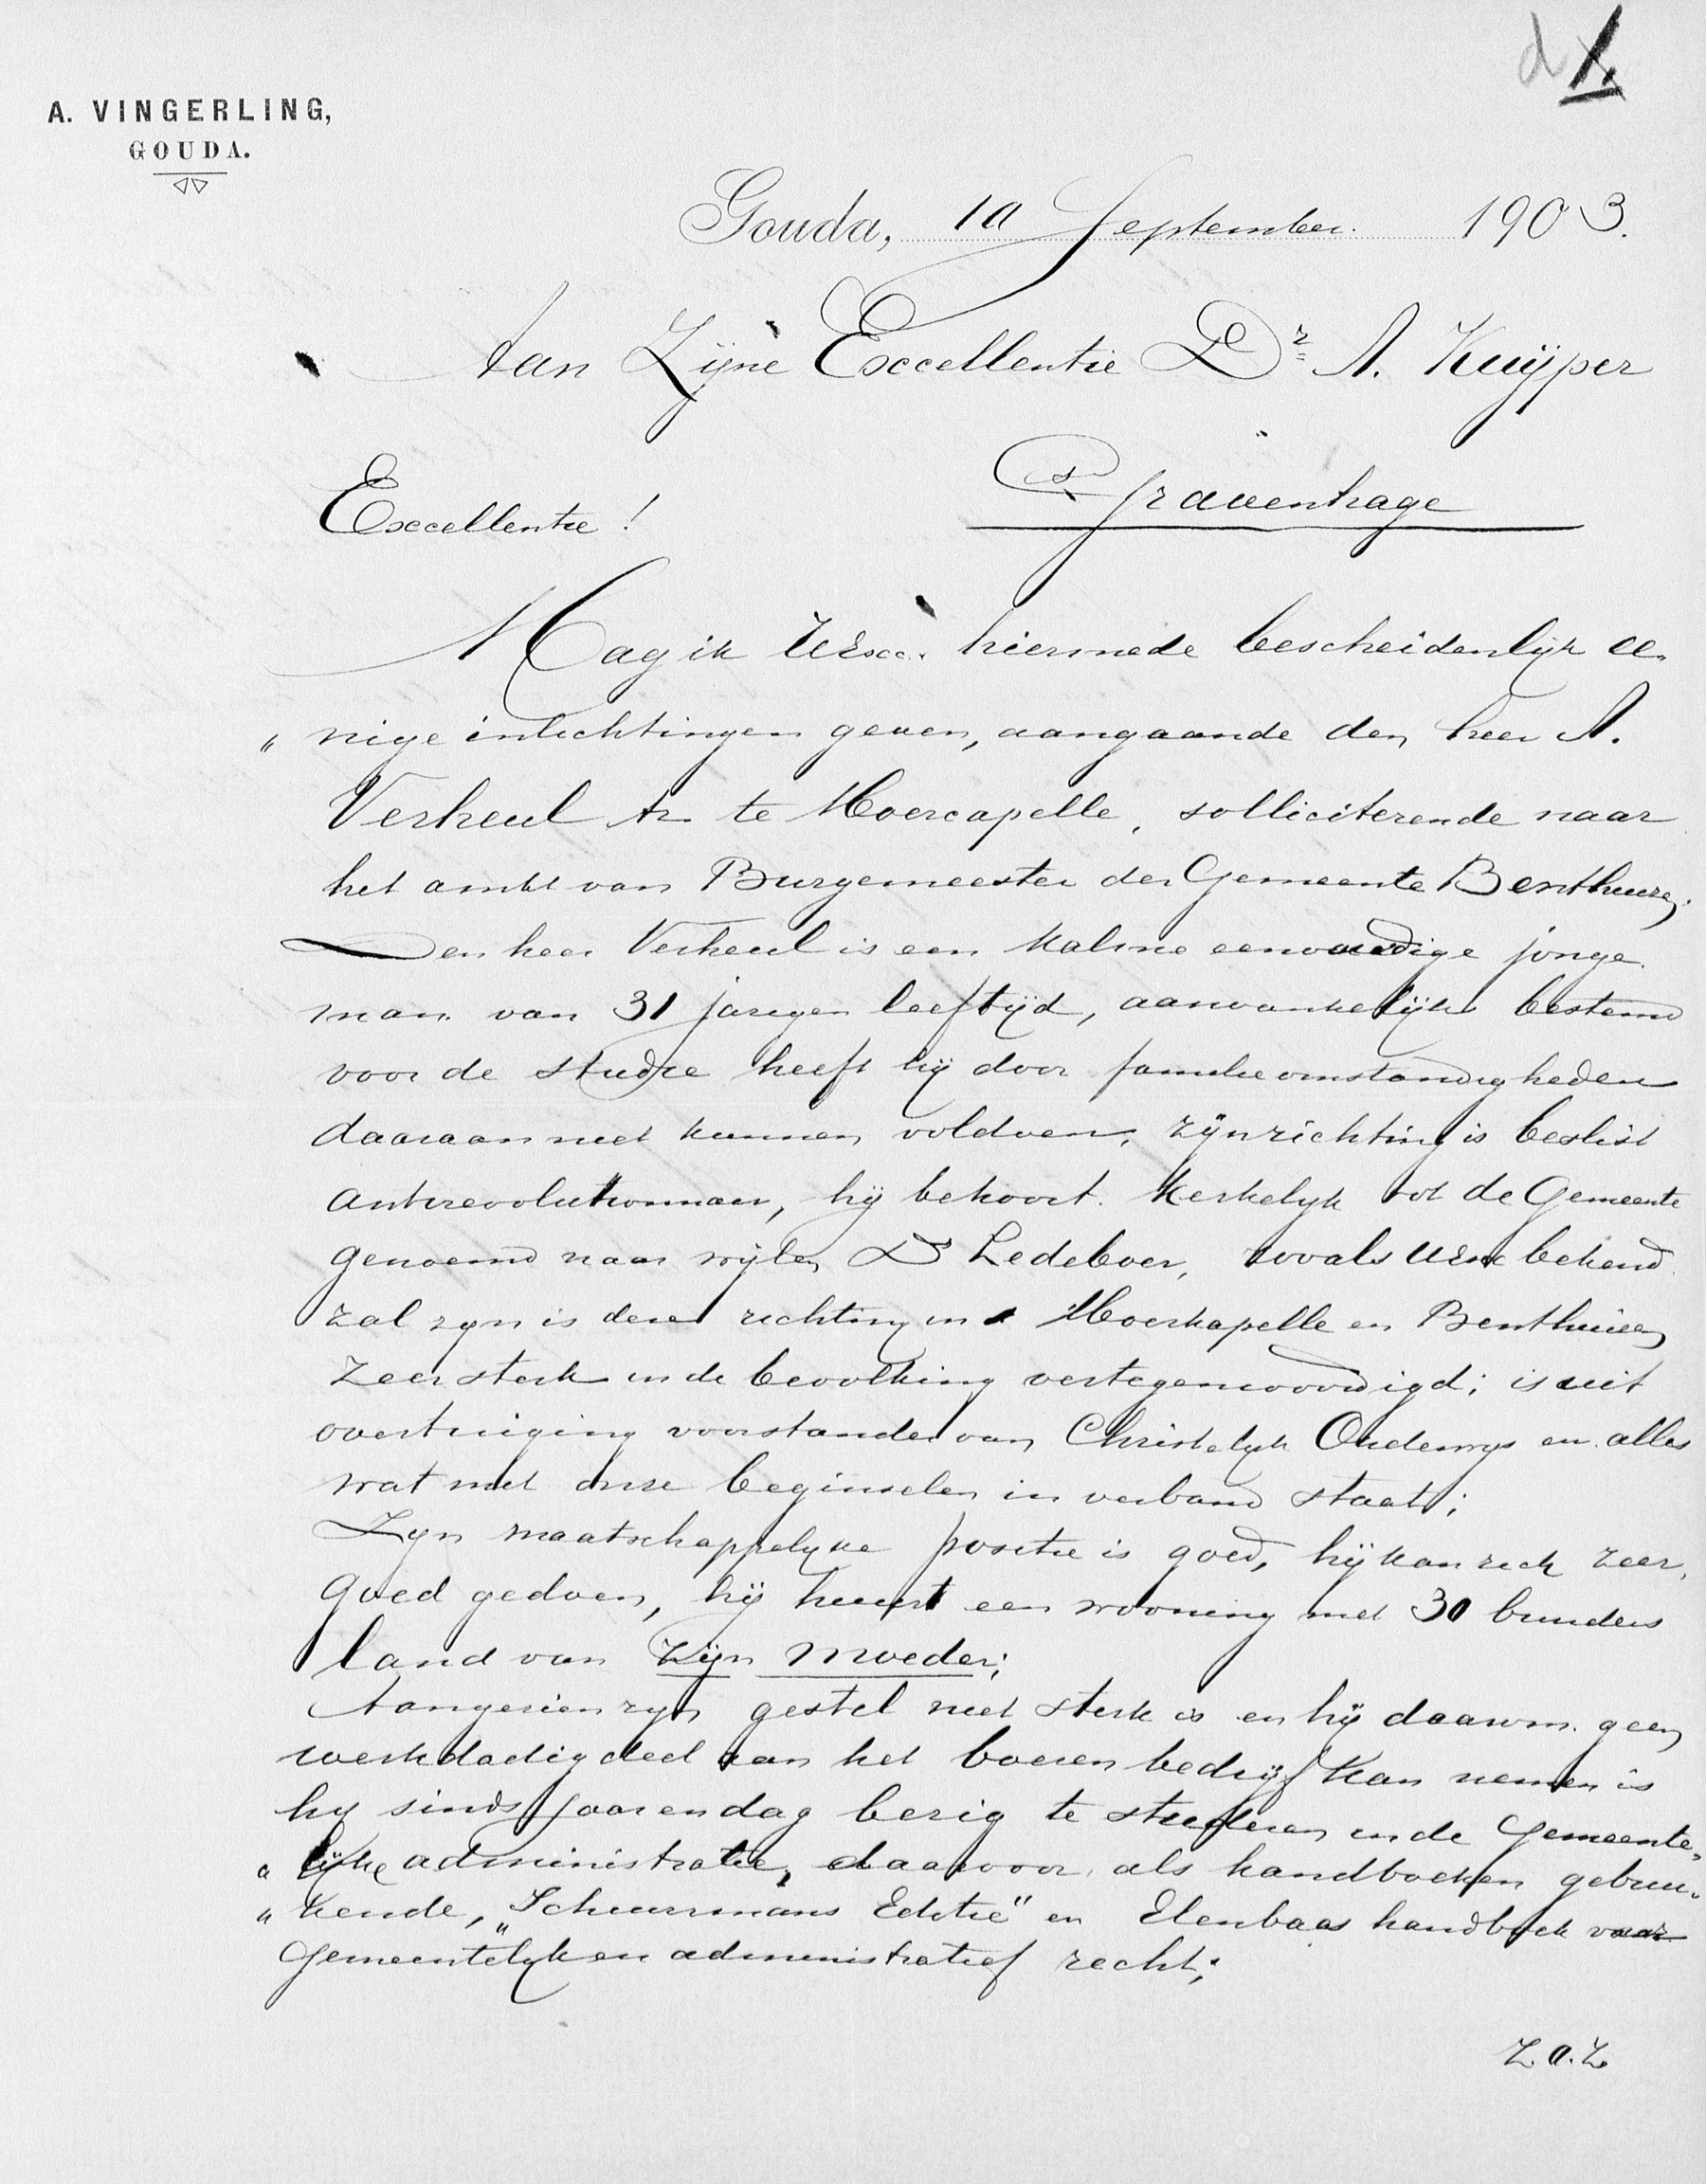 d 1.
A. VINGERLING,
GOUDA.
Gouda, 10 September 1903.
Aan Zijne Exccellentie Dr A. Kuijper
s Gravenhage
Exccellentie!
Mag ik UExc. hiermede bescheidenlijk ee-
„ nige inlichtingen geven, aangaande den heer A.
Verheul Az te Moercapelle, solliciterende naar
het ambt van Burgemeester der Gemeente Benthuizen.
Den heer Verheul is een kalme eenvoudige jonge
man van 31 jarigen leeftijd, aanvankelijk bestemd
voor de studie heeft hij door familieomstandigheden
daaraan niet kunnen voldoen; zijn richting is beslist
antirevolutionnair, hij behoort kerkelijk tot de Gemeente
genoemd naar wijlen Ds Ledeboer, zooals UExc bekend
zal zyn is deze richting in Moerkapelle en Benthuizen
zeer sterk in de bevolking vertegenwoordigd; is uit
overtuiging voorstander van Christelyk Onderwys en alles
wat met onze beginselen in verband staat;
Zyn maatschappelyke positie is goed, hij kan zich zeer
goed gedoen, hij huurt een wooning met 30 bunders
land van zijn moeder;
Aangezien zyn gestel niet sterk is en hij daarom geen
werkdadig deel aan het boerenbedrijf kan nemen is
hy sinds jaar en dag bezig te studeren in de Gemeente„
„ lijke administratie, daarvoor als handboeken gebrui„
„ kende, „Schuurmans Editie" en Elenbaas handboek voor
Gemeentelyk en administratief recht;
Z.O.Z.